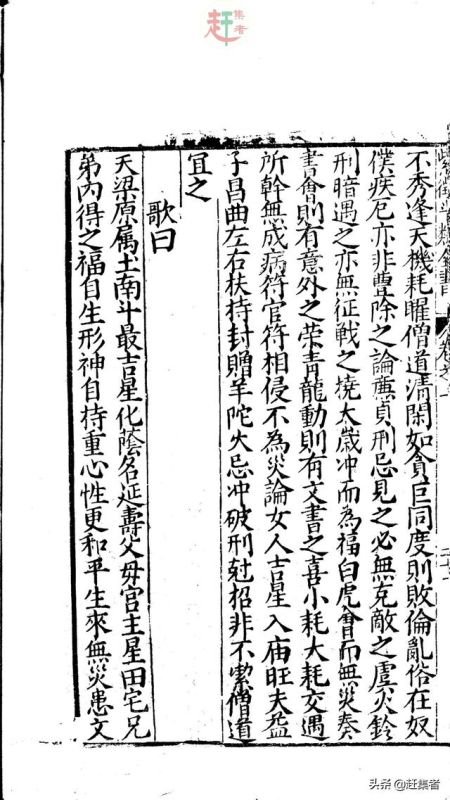 赶集者
不秀逢天機耗曜僧道清閑如貪巨同度則敗倫亂俗在奴
僕疾厄亦非豊除之論亷貞刑忌見之必無克敵之虞火鈴
刑暗遇之亦無征戦之撓太歲冲而為福白虎會而無災奏
書會則有意外之荣青龍動則有文書之喜小耗大耗交遇
所幹無成病符官符相侵不為災論女人吉星入庙旺夫益
子昌曲左右扶持封贈羊陀火忌冲破刑尅招非不潔僧道
宜之
歌曰
天梁原属土南斗最吉星化蔭名延壽父毋宮主星田宅兄
弟内得之福自生形神自持重心性更和平生來無災患文
头条 @赶集者